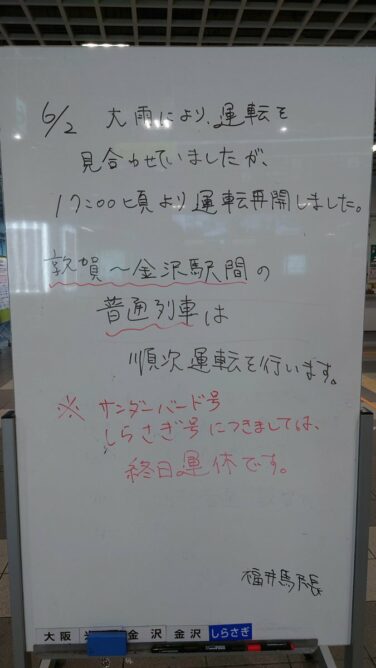 6/2 大雨により、運転を
見合わせていましたが、
17:00頃より運転再開しました。
敦賀～金沢駅間の
普通列車は
順次運転を行います。
※ サンダーバード号
しらさぎ号につきましては、
終日運休です。
福井駅長
大阪 米 金沢 金沢 しらさぎ